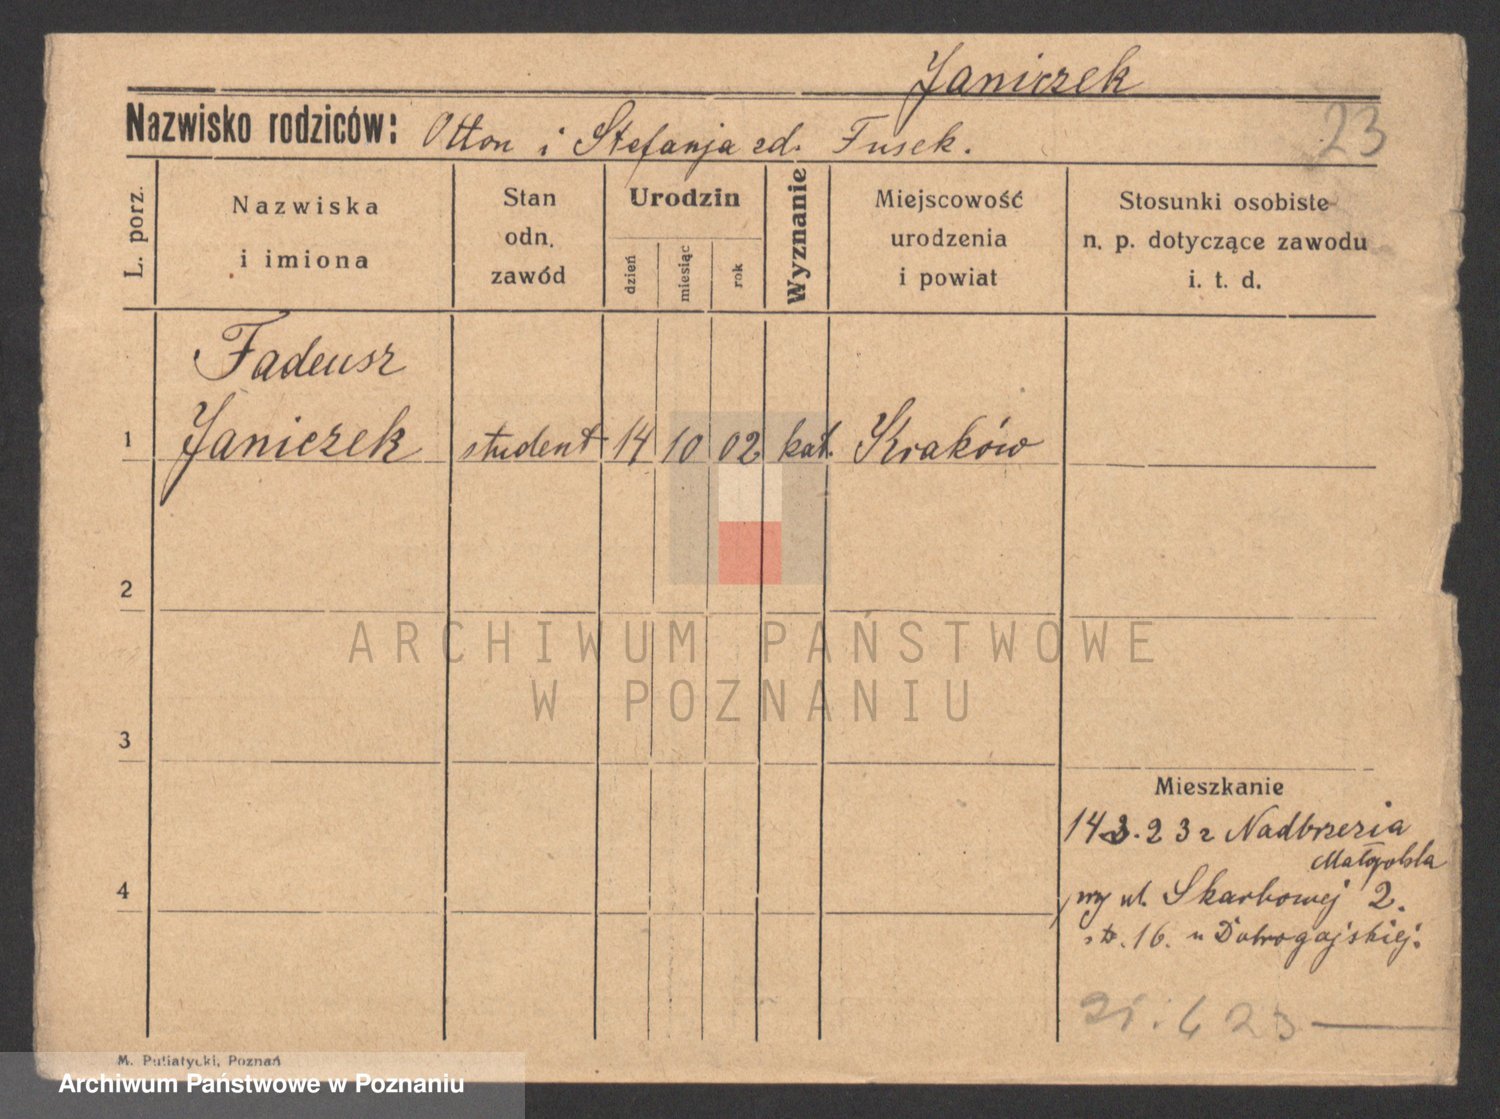 Janiczek
Nazwisko rodziców: Otton i Stefanja zd. Fusek.
23
L. porz.
Nazwiska
i imiona
Stan
odn.
zawód
Urodzin
dzień
miesiąc
rok
Wyznanie
Miejscowość
urodzenia
i powiat
Stosunki osobiste
n. p. dotyczące zawodu
i. t. d.
Tadeusz
1 Janiczek student 14 10 02 kat. Kraków
2
3
4
ARCHIWUM PAŃSTWOWE
W POZNANIU
Mieszkanie
14 3. 23 z Nadbrzezia
Małopolska
przy ul. Skarbowej 2.
16. u Dobrogajskiej.
21. 6 23
M. Putiatycki, Poznań
Archiwum Państwowe w Poznaniu